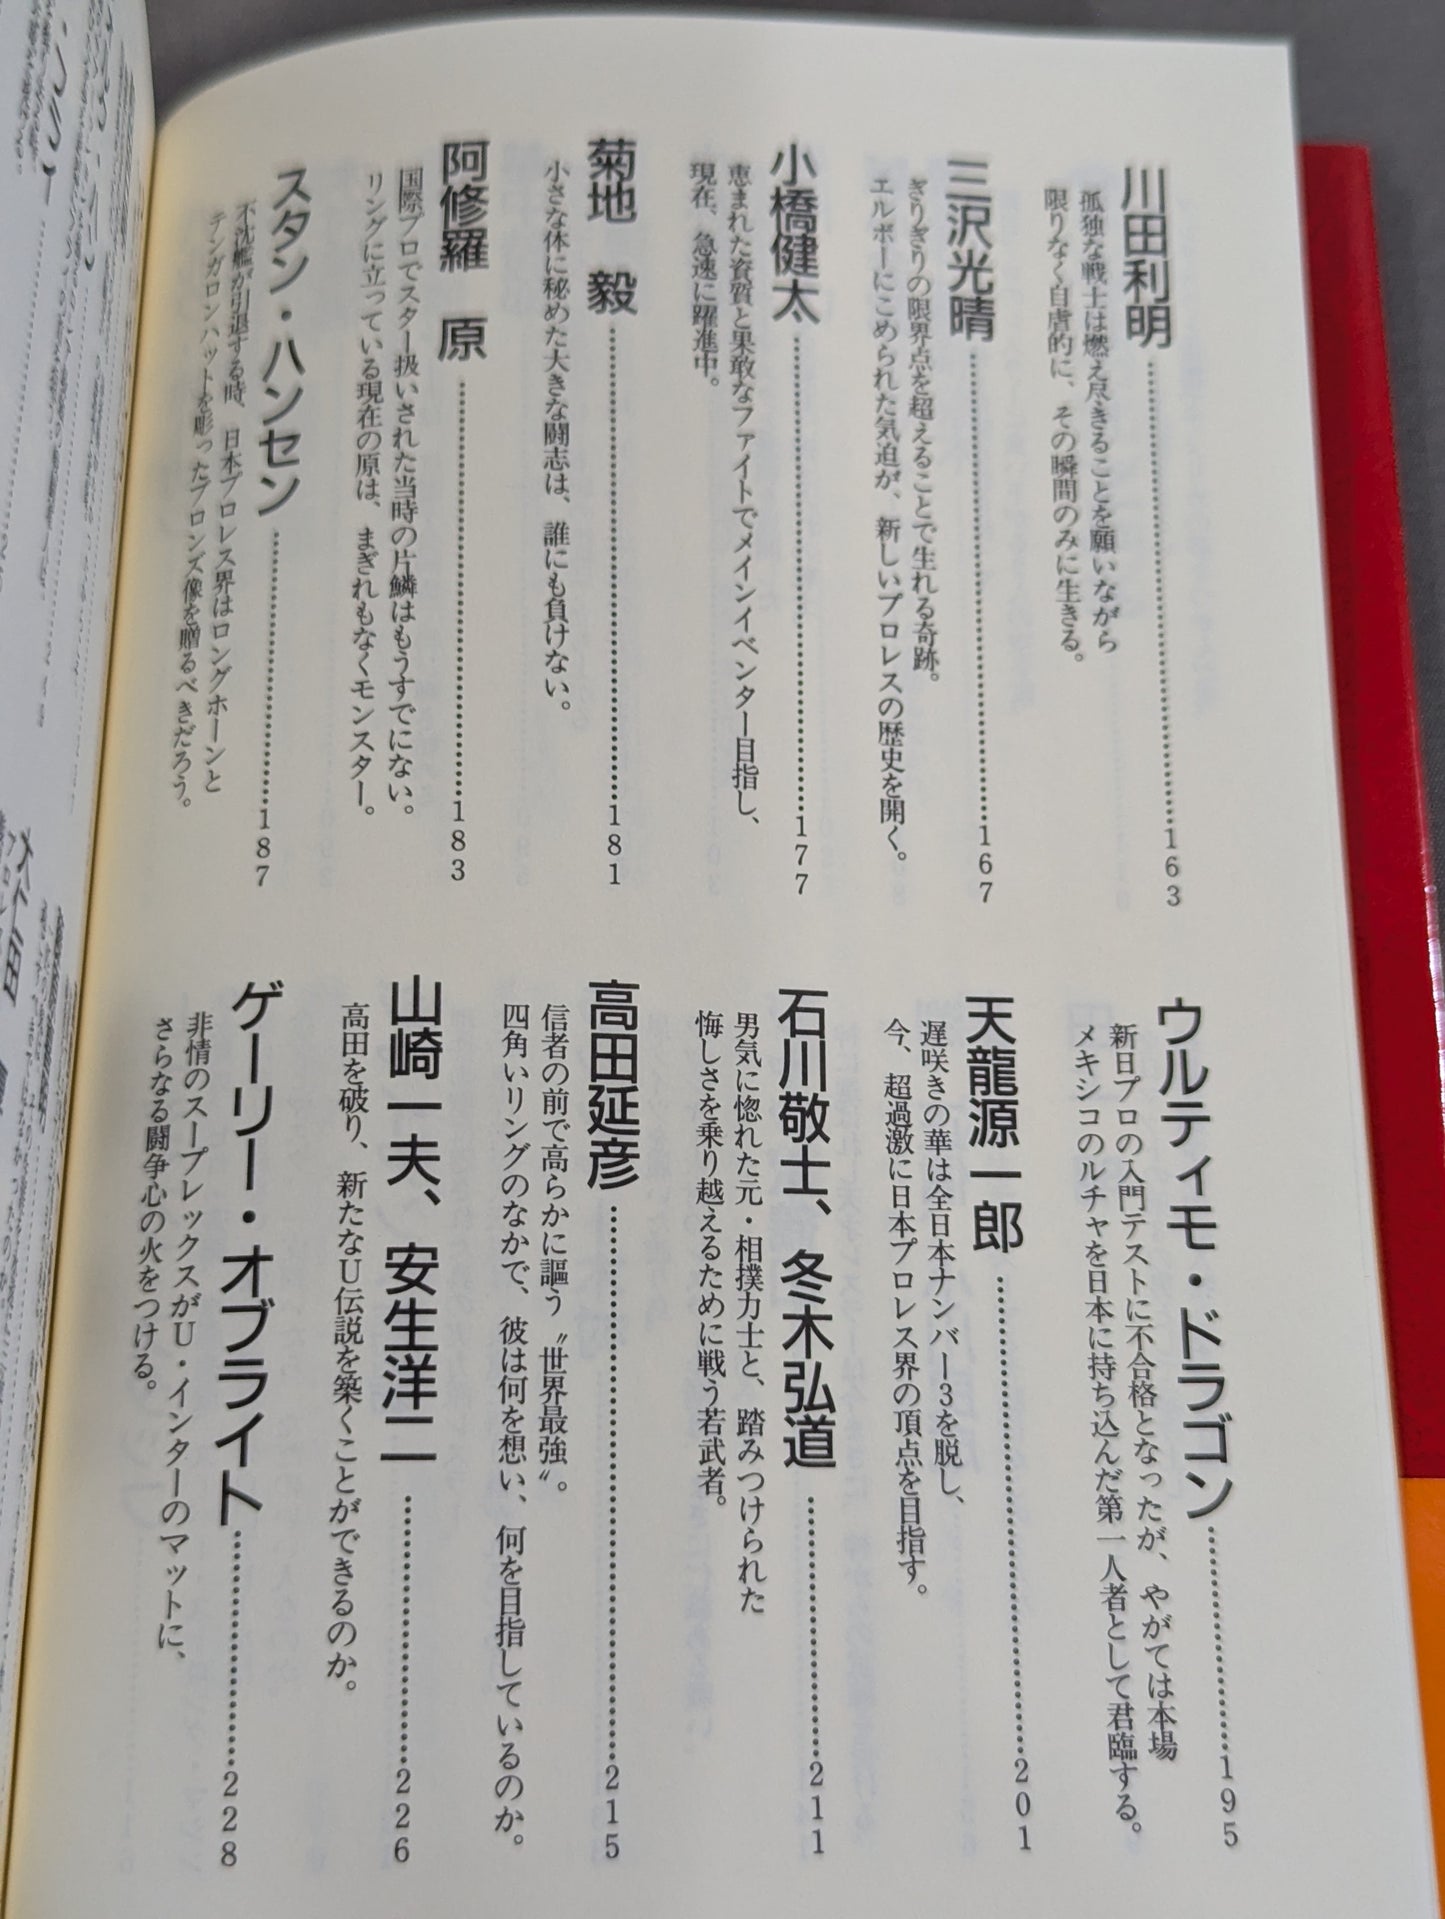 川田利明……………163
孤独な戦士は燃え尽きることを願いながら
限りなく自虐的に、その瞬間のみに生きる。
三沢光晴……………167
ぎりぎりの限界点を超えることで生れる奇跡。
エルボーにこめられた気迫が、新しいプロレスの歴史を開く。
小橋健太……………177
恵まれた資質と果敢なファイトでメインイベンター目指し、
現在、急速に躍進中。
菊地　毅……………181
小さな体に秘めた大きな闘志は、誰にも負けない。
阿修羅　原……………183
国際プロでスター扱いされた当時の片鱗はもうすでにない。
リングに立っている現在の原は、まぎれもなくモンスター。
スタン・ハンセン……………187
不沈艦が引退する時、日本プロレス界はロングホーンと
テンガロンハットを彫ったブロンズ像を贈るべきだろう。
ウルティモ・ドラゴン……………195
新日プロの入門テストに不合格となったが、やがては本場
メキシコのルチャを日本に持ち込んだ第一人者として君臨する。
天龍源一郎……………201
遅咲きの華は全日本ナンバー3を脱し、
今、超過激に日本プロレス界の頂点を目指す。
石川敬士、冬木弘道……………211
男気に惚れた元・相撲力士と、踏みつけられた
悔しさを乗り越えるために戦う若武者。
高田延彦……………215
信者の前で高らかに謳う〝世界最強〟。
四角いリングのなかで、彼は何を想い、何を目指しているのか。
山崎一夫、安生洋二……………226
高田を破り、新たなU伝説を築くことができるのか。
ゲーリー・オブライト……………228
非情のスープレックスがU・インターのマットに、
さらなる闘争心の火をつける。